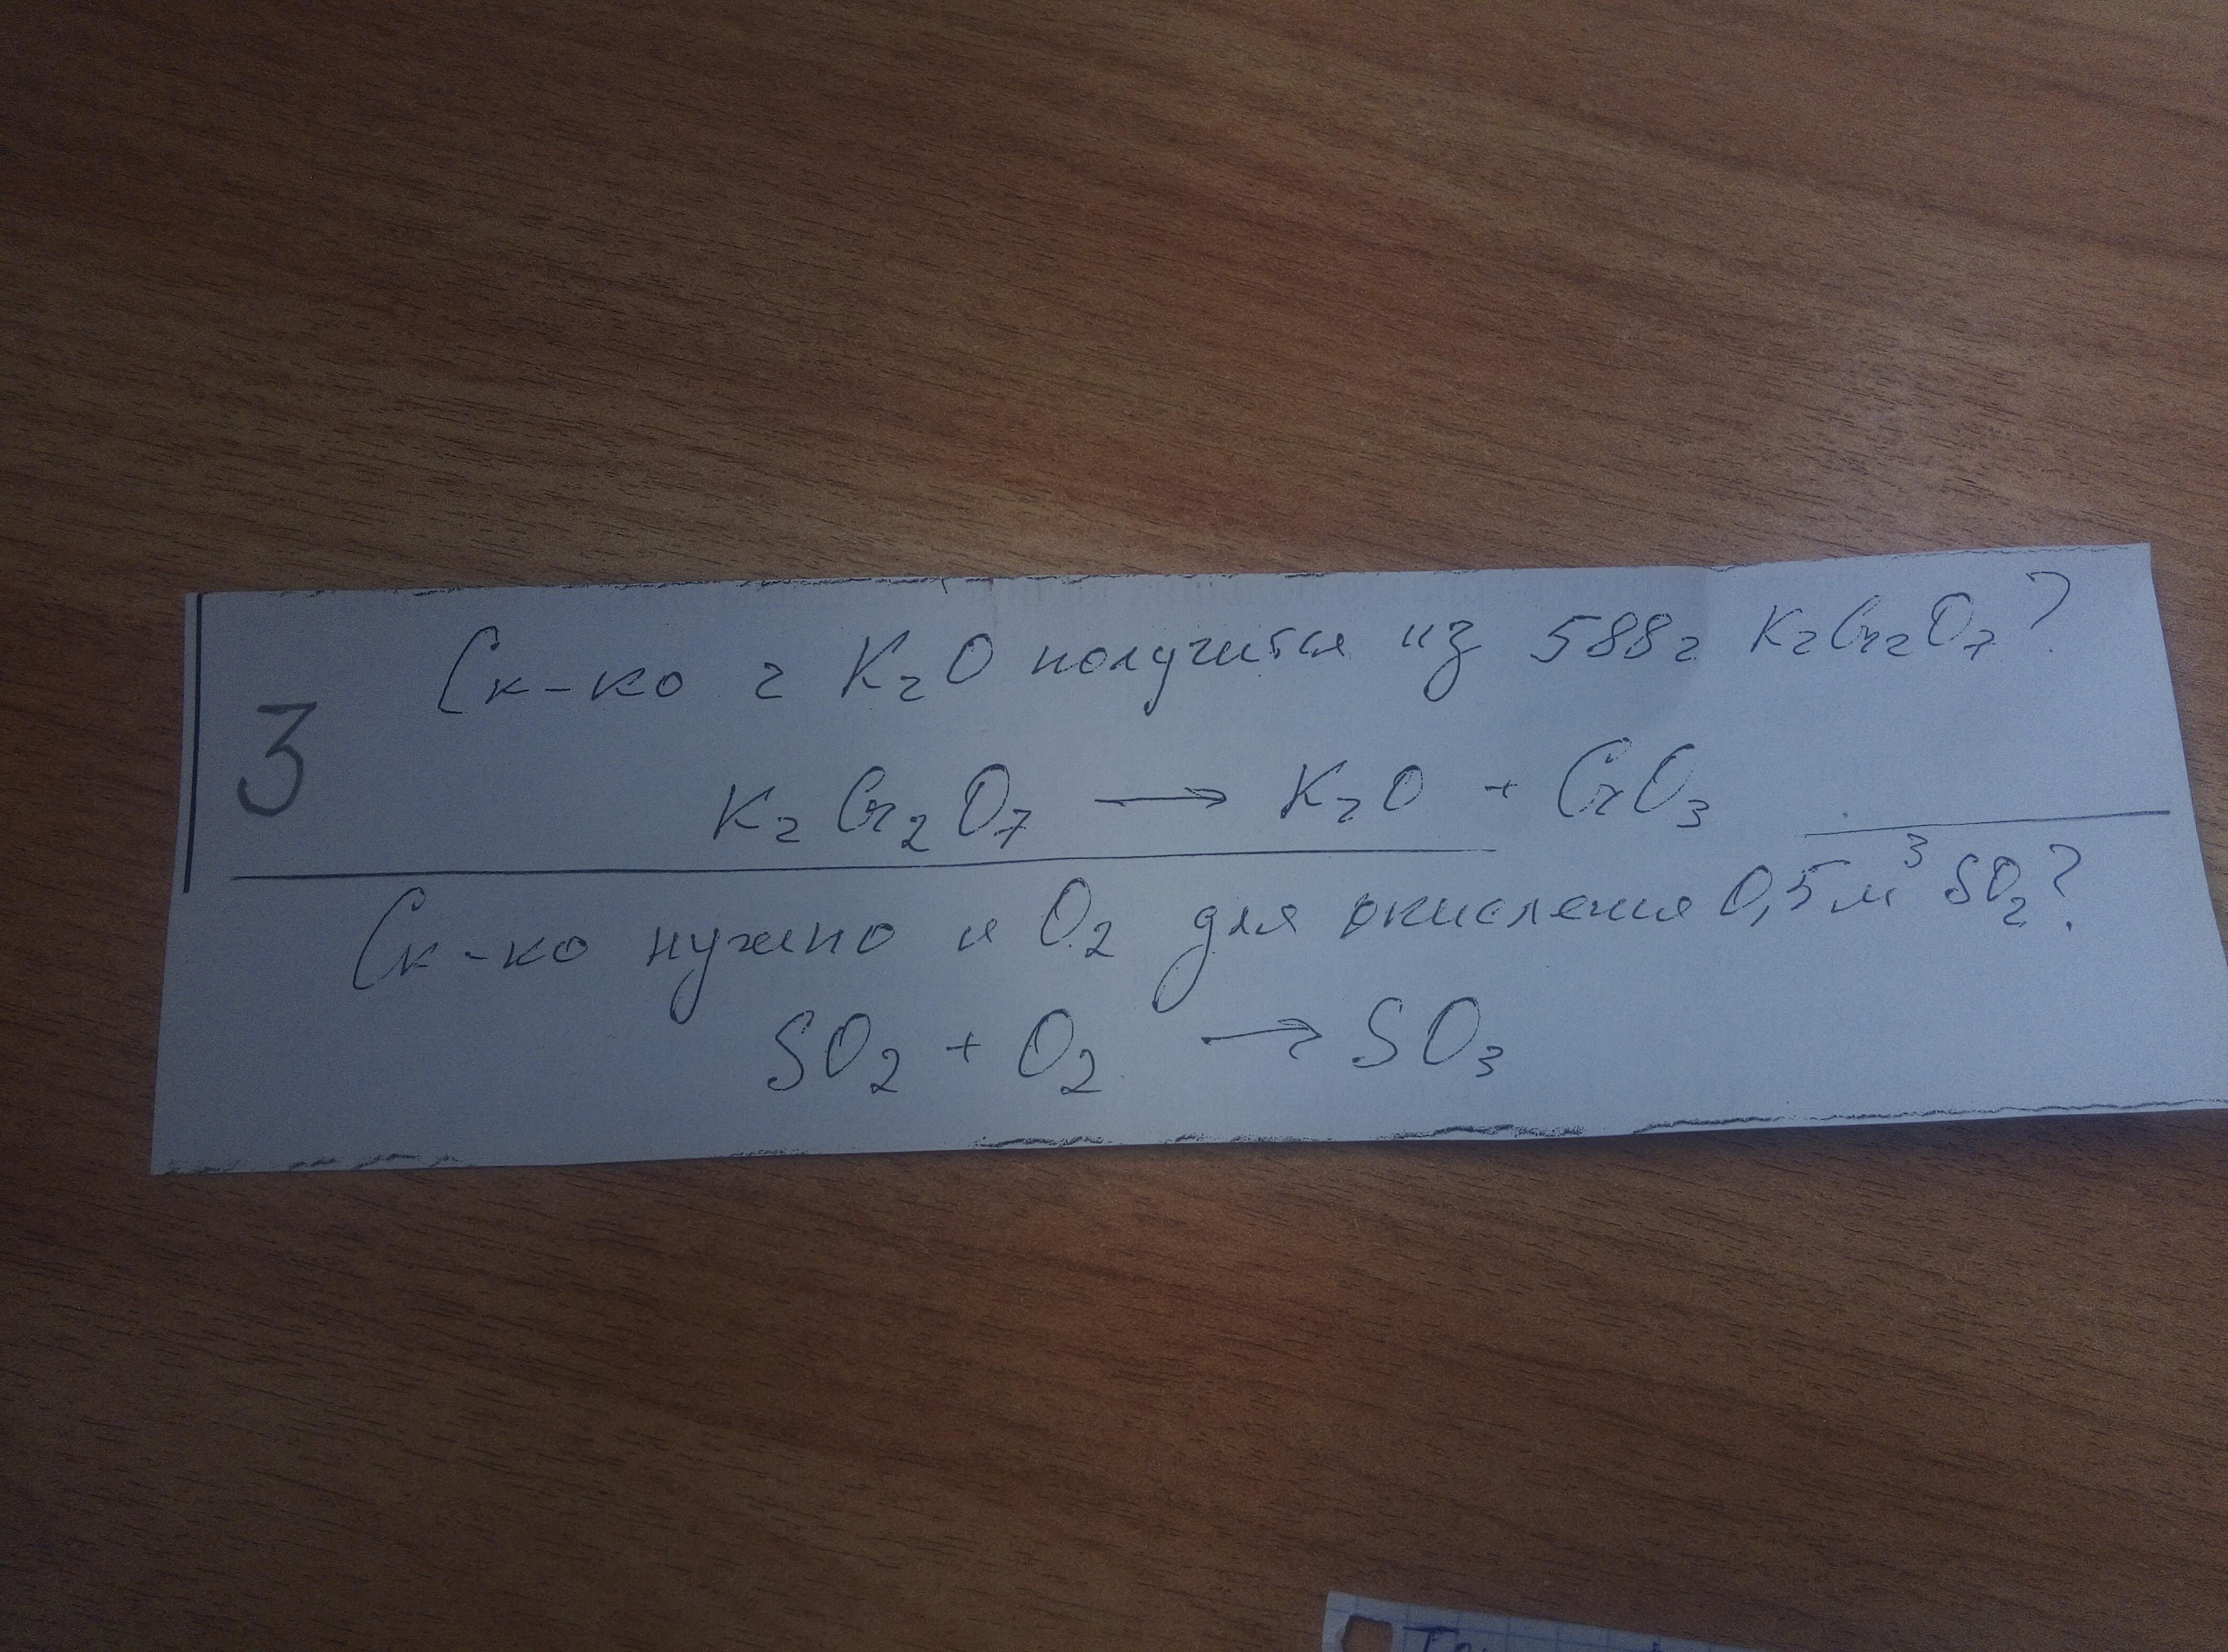 Ск-ко г K₂O получится из 588г K₂Cr₂O₇?
3
K₂Cr₂O₇ → K₂O + CrO₃
Ск-ко нужно л O₂ для окисления 0,5 м³ SO₂?
SO₂ + O₂ → SO₃